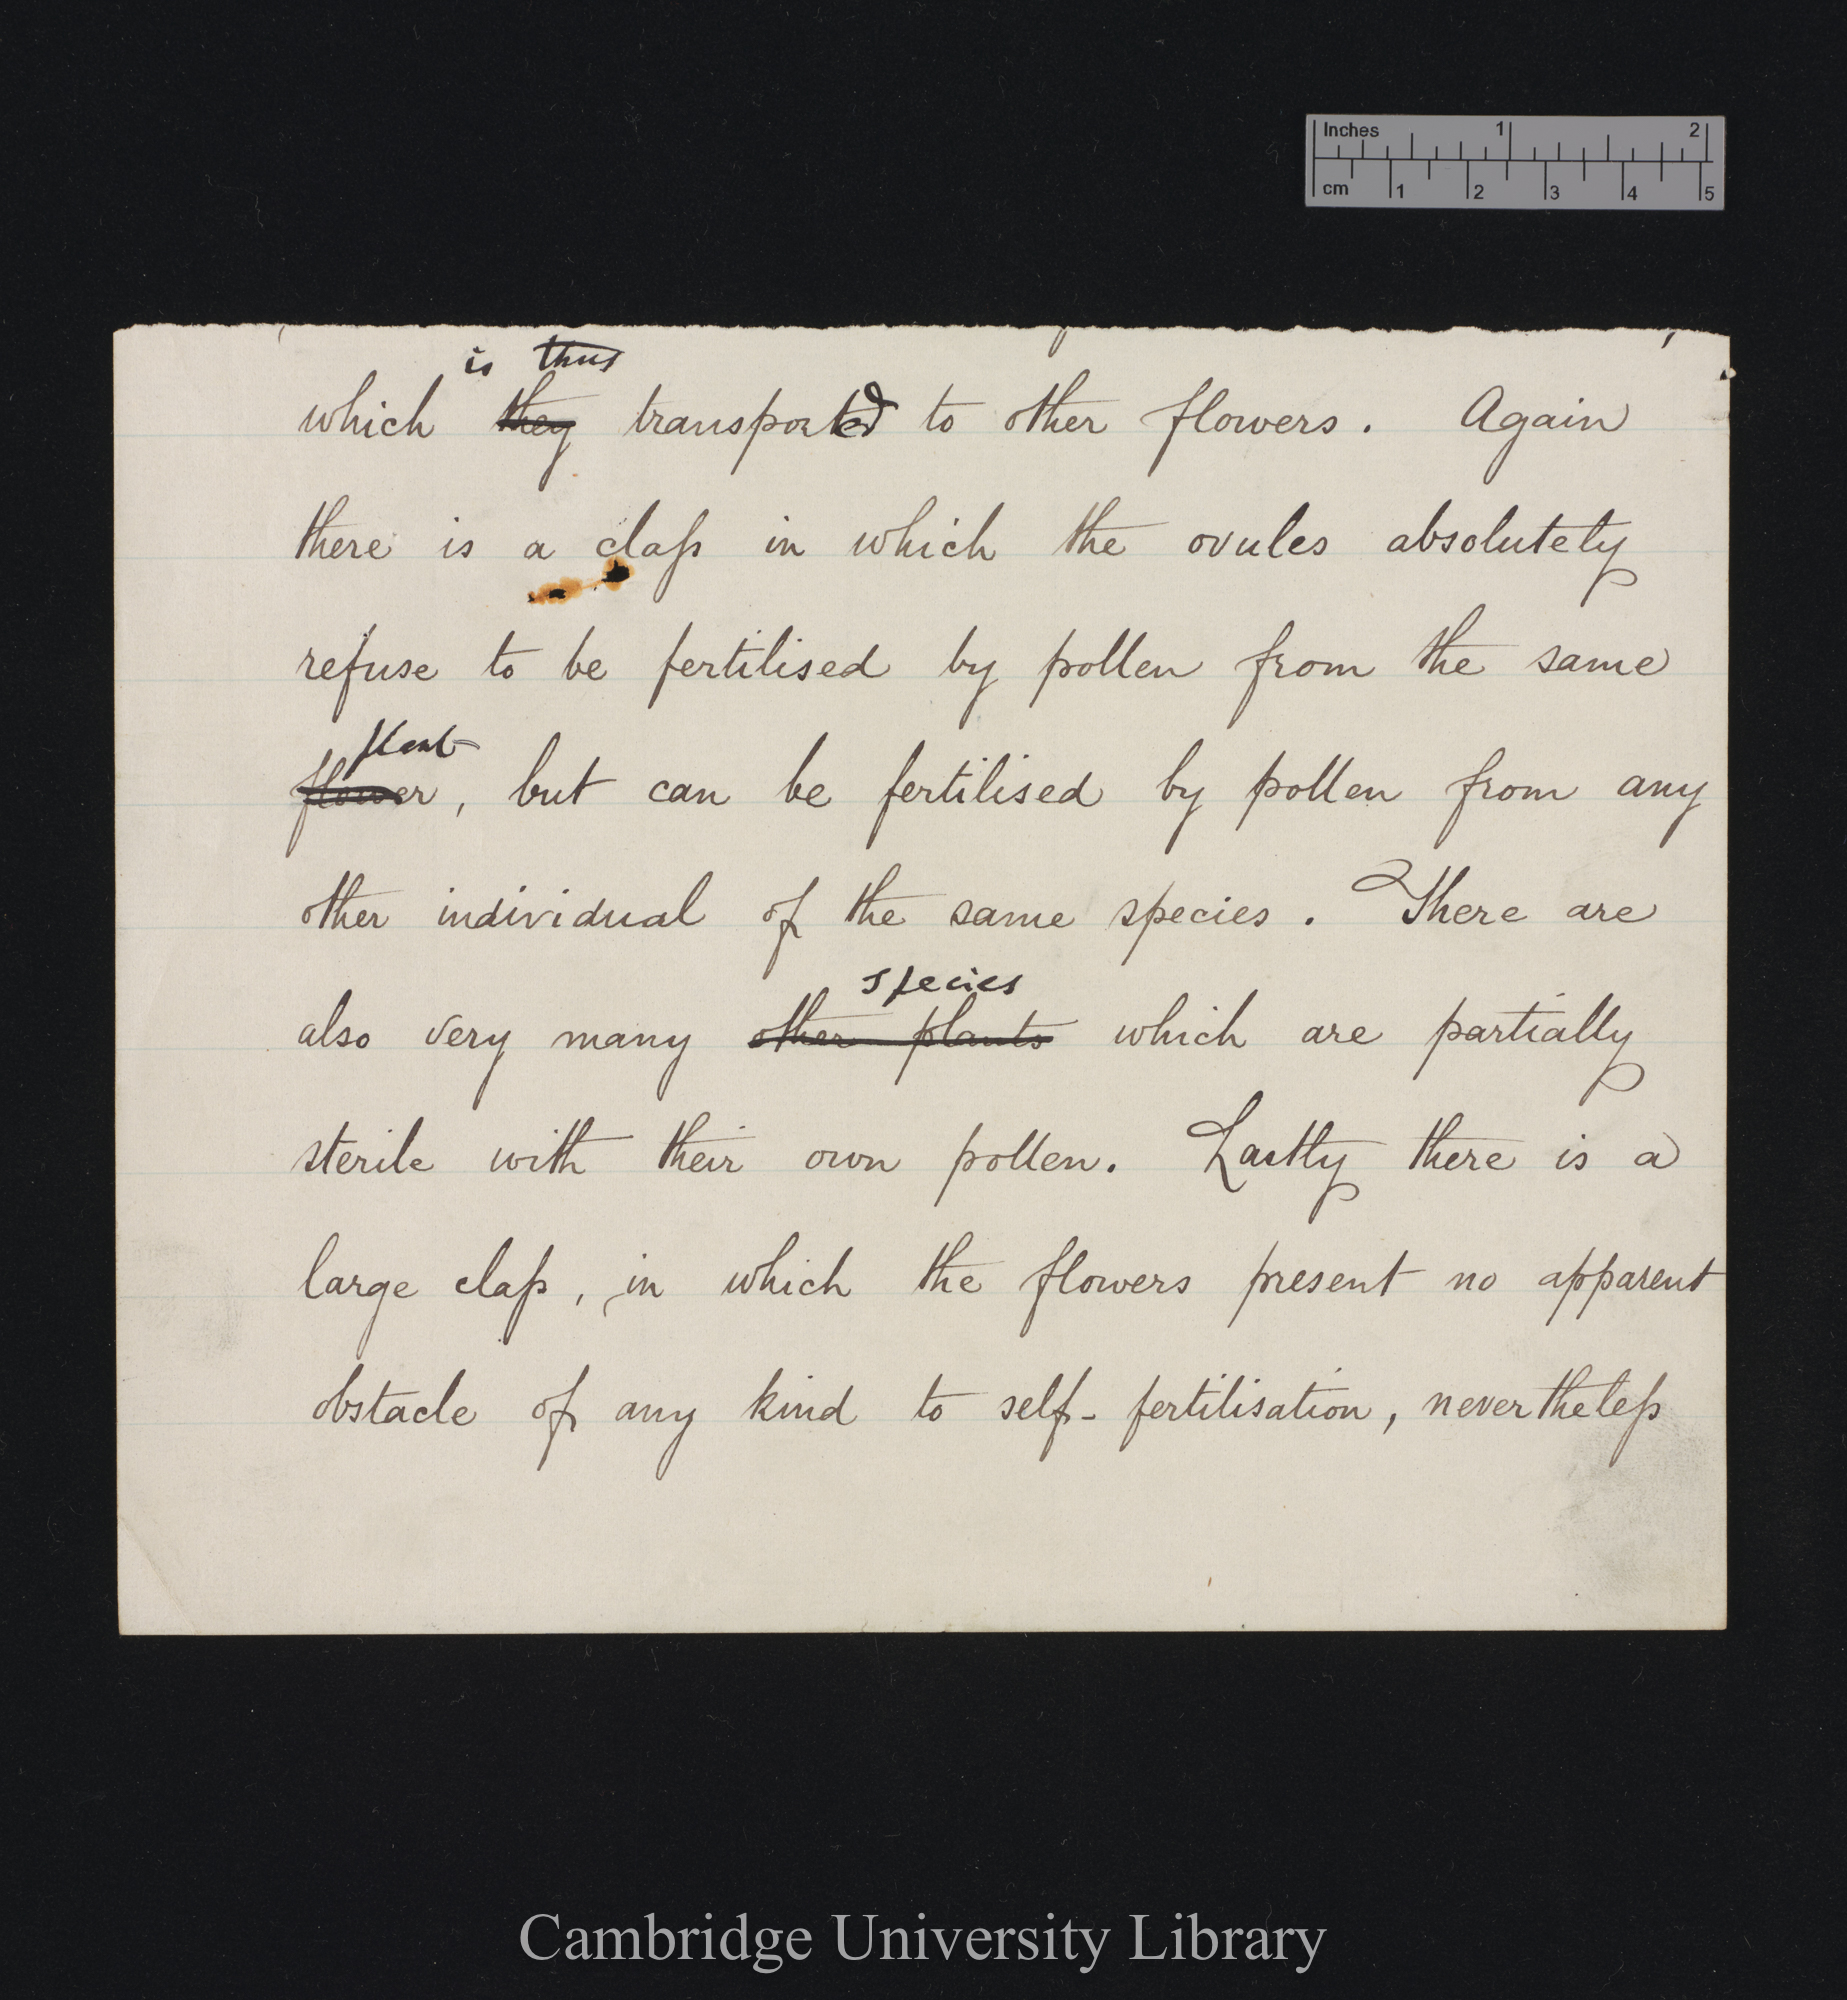 Inches 1 2
cm 1 2 3 4 5
is thus
which they transported to other flowers. Again
there is a class in which the ovules absolutely
refuse to be fertilised by pollen from the same
plant
flower, but can be fertilised by pollen from any
other individual of the same species. There are
species
also very many other plants which are partially
sterile with their own pollen. Lastly there is a
large class, in which the flowers present no apparent
obstacle of any kind to self-fertilisation, nevertheless
Cambridge University Library